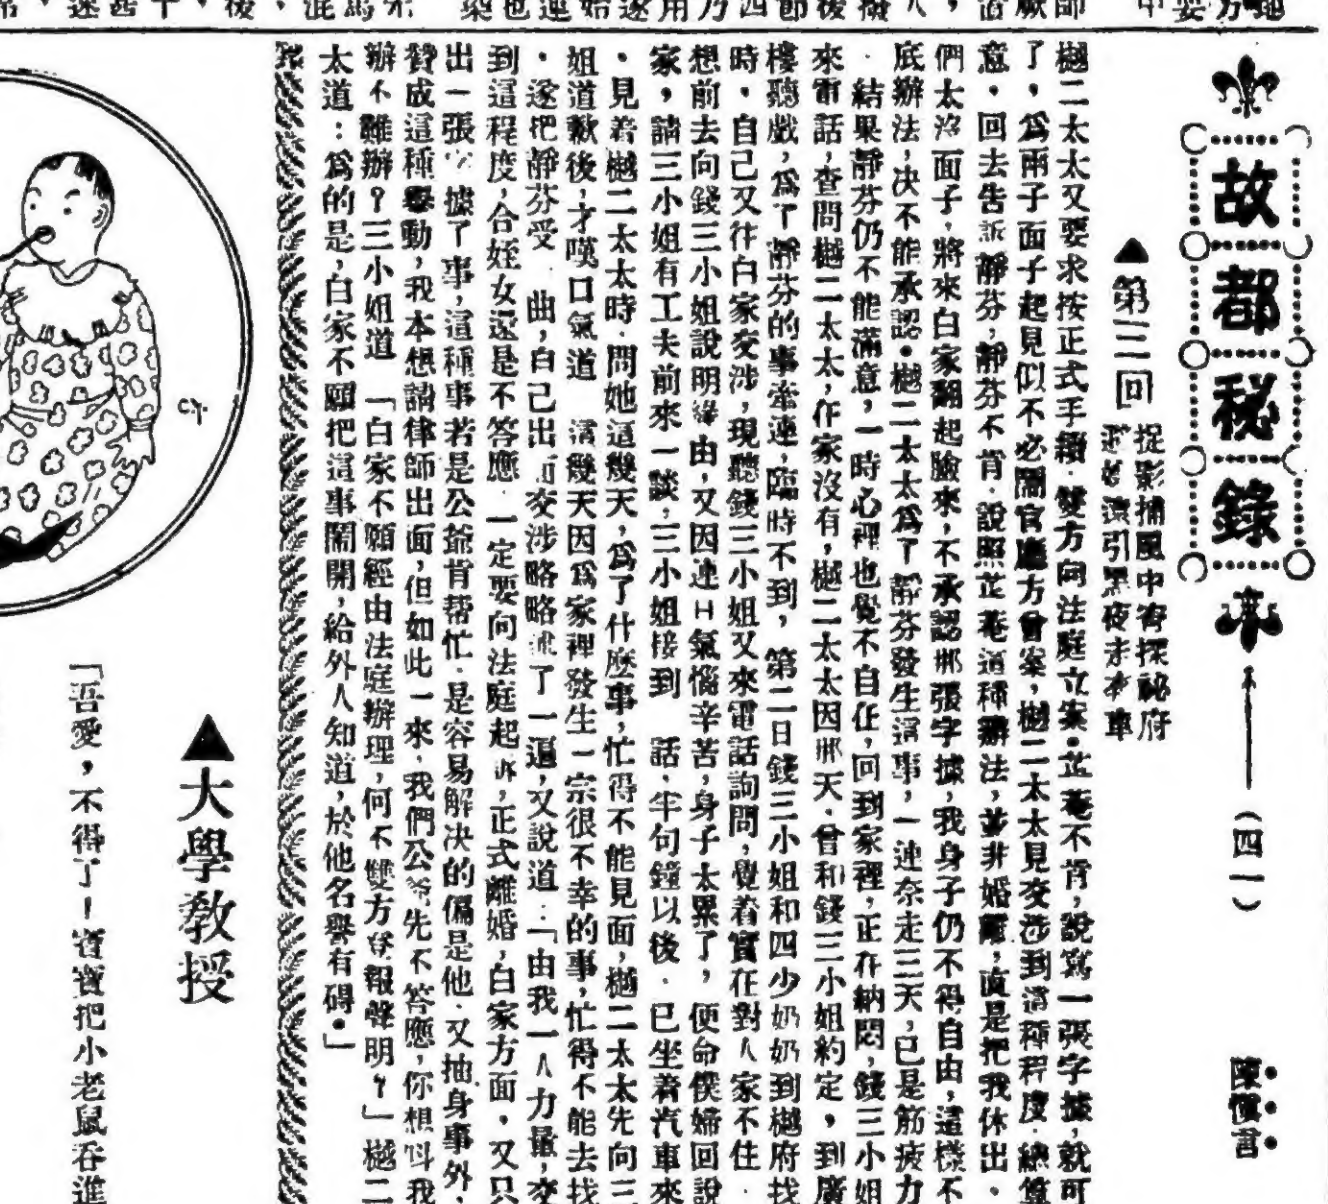 故都秘錄
(四一)
陳愼言
▲第三回
捉影捕風中宵探祕府
遠引黑夜走車
樾二太太又要求按正式手續．雙方向法庭立案．芷菴不肯，說寫一張字據，就可
了，爲兩子面子起見似不必鬧官廳方會案，樾二太太見交涉到這種程度．總算
意．回去告訴靜芬，靜芬不肯．說照芷菴這種辦法，並非婚離，直是把我休出．
們太沒面子，將來白家翻起臉來，不承認那張字據，我身子仍不得自由，這樣不
底辦法，决不能承認．樾二太太爲了靜芬發生這事，一連奔走三天，已是筋疲力
．結果靜芬仍不能滿意，一時心裡也覺不自在，回到家裡，正在納悶，錢三小姐
來電話，查問樾二太太，在家沒有，樾二太太因那天．曾和錢三小姐約定，到廣
樓聽戲，爲了靜芬的事牽連，臨時不到，第二日錢三小姐和四少奶奶到樾府找
時．自己又往白家交涉，現聽錢三小姐又來電話詢問，覺着實在對人家不住．
想前去向錢三小姐說明緣由，又因連日氣惱辛苦，身子太累了，便命僕婦回說
家，請三小姐有工夫前來一談，三小姐接到　話，半句鐘以後．已坐着汽車來
．見着樾二太太時，問她這幾天，爲了什麼事，忙得不能見面，樾二太太先向三
姐道歉後，才嘆口氣道　這幾天因爲家裡發生一宗很不幸的事，忙得不能去找
．遂把靜芬受　曲，自己出面交涉略略述了一遍，又說道：「由我一人力量，交
到這程度，合姪女還是不答應　一定要向法庭起訴，正式離婚，白家方面．又只
出一張字據了事，這種事若是公爺肯帮忙．是容易解决的偏是他．又抽身事外，
贊成這種舉動，我本想請律師出面，但如此一來，我們公爺先不答應，你想叫我
辦不難辦？三小姐道　「白家不願經由法庭辦理，何不雙方登報聲明？」樾二
太道：爲的是，白家不願把這事鬧開，給外人知道，於他名譽有碍．」
C.Y.
▲大學敎授
「吾愛，不得了！寶寶把小老鼠吞進